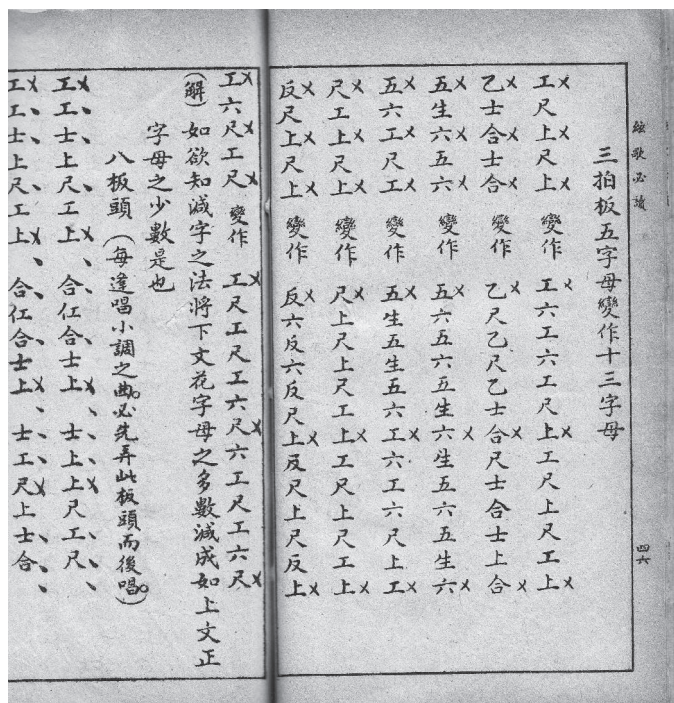 絃歌必讀
四六
三拍板五字母變作十三字母
工尺上尺上 變作 工六工六工尺上工尺上尺工上
乙士合士合 變作 乙尺乙尺乙士合尺士合士上合
五生六五六 變作 五六五六五生六生五六五生六
五六工尺工 變作 五生五生五六工六工六尺上工
尺工上尺上 變作 尺上尺上尺工上工尺上尺工上
反尺上尺上 變作 反六反六反尺上反尺上尺反上
工六尺工尺 變作 工尺工尺工六尺六工尺工六尺
(解) 如欲知減字之法將下文花字母之多數減成如上文正
字母之少數是也
八板頭 (每逢唱小調之曲必先弄此板頭而後唱。)
工、工、士上尺工上、合仜合士上、士、上上尺工尺、
工、工、士、上尺、工上、合、仜、合士、上、士、工、尺、上士、合、